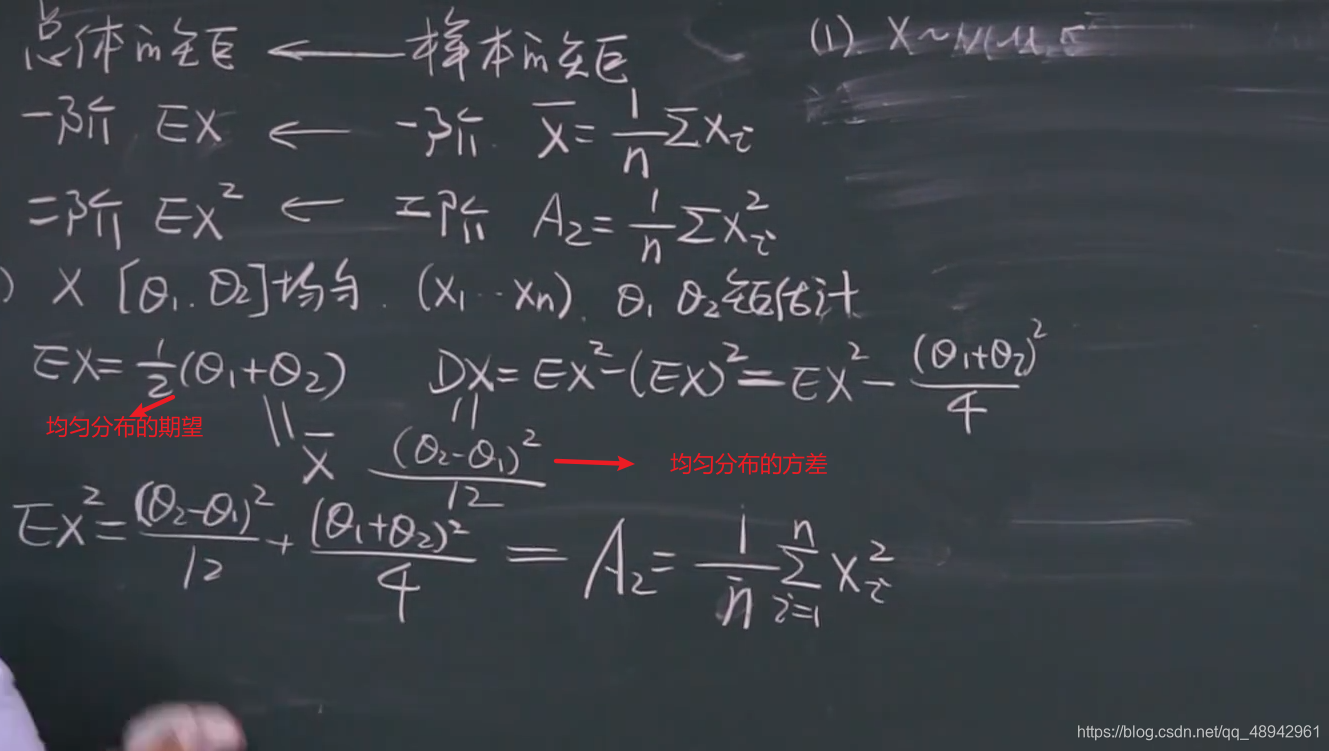 总体的矩 ← 样本的矩
(1) X~N(μ,σ
一阶 EX ← 一阶 X̄=1/n ΣXi
二阶 EX² ← 二阶 A₂=1/n ΣXi²
) X [θ₁..θ₂]均匀. (X₁…Xn). θ₁ θ₂矩估计
EX=1/2(θ₁+θ₂) DX=EX²-(EX)²=EX²-(θ₁+θ₂)²/4
均匀分布的期望
|| X̄ || (θ₂-θ₁)²/12 均匀分布的方差
EX²=(θ₂-θ₁)²/12+(θ₁+θ₂)²/4=A₂=1/n Σ(i=1→n) Xi²
https://blog.csdn.net/qq_48942961